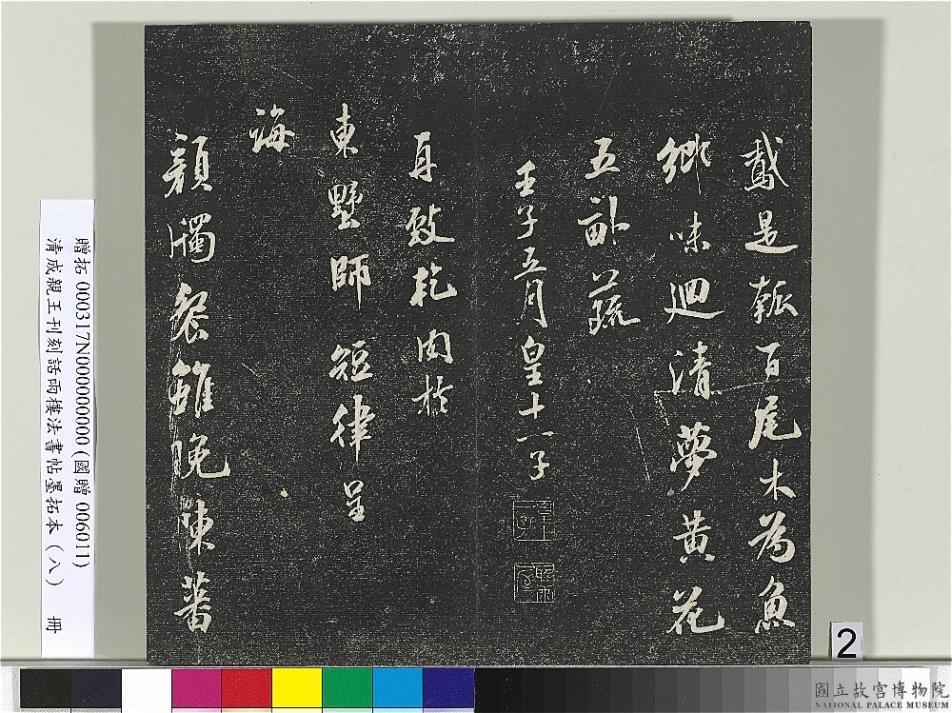 是瓠百尾木為魚
鄉味迴清夢黃花
五畝蔬
壬子五月皇十一子
再致乾肉於
東墅師短律呈
誨
頖觸餐雖晚陳蕃
贈拓 000317N000000000 (國贈 006011)
清成親王刊刻話雨樓法書帖墨拓本（八） 冊
2
國立故宮博物院
NATIONAL PALACE MUSEUM